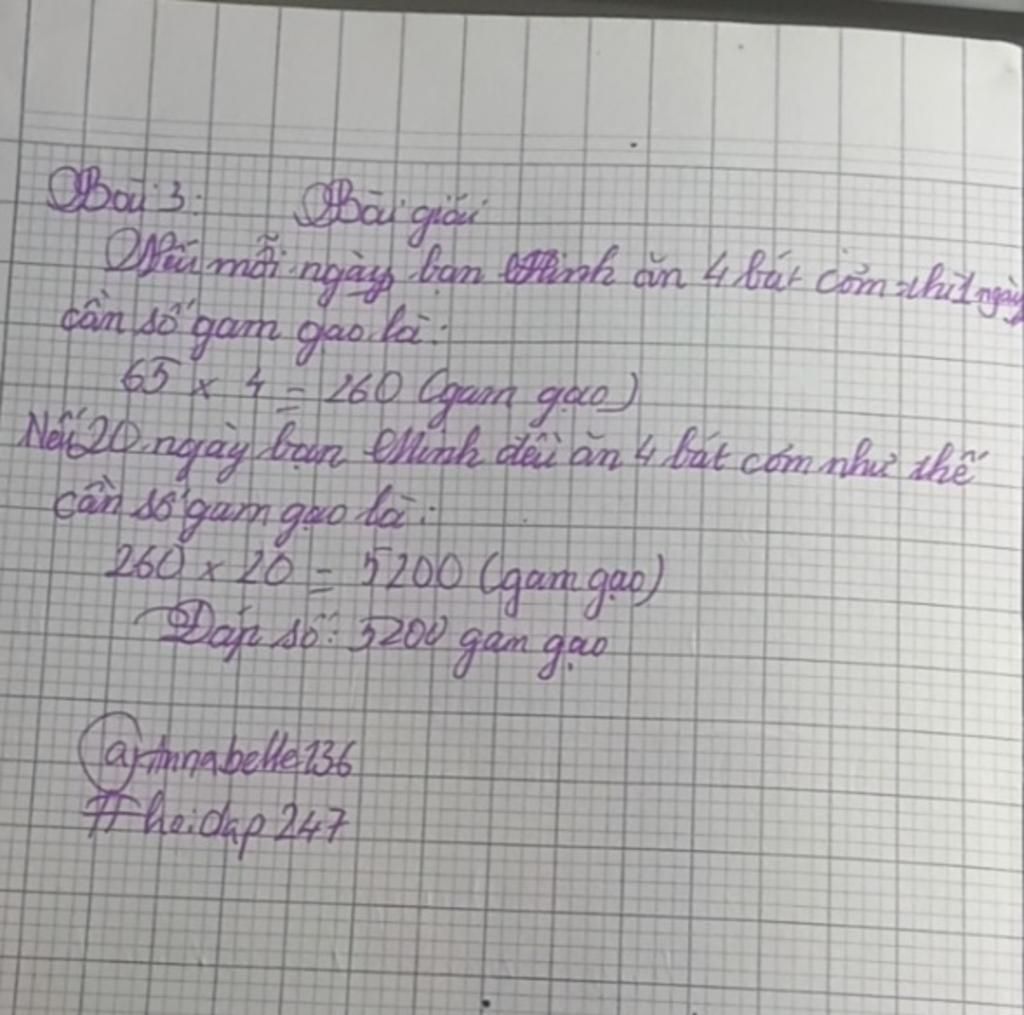 Bài 3: Bài giải
Nếu mỗi ngày bạn Minh ăn 4 bát cơm thì 1 ngày
cần số gam gạo là:
65 x 4 = 260 (gam gạo)
Nếu 20 ngày bạn Minh đều ăn 4 bát cơm như thế
cần số gam gạo là:
260 x 20 = 5200 (gam gạo)
Đáp số: 5200 gam gạo
@Annabelle136
#hoidap247